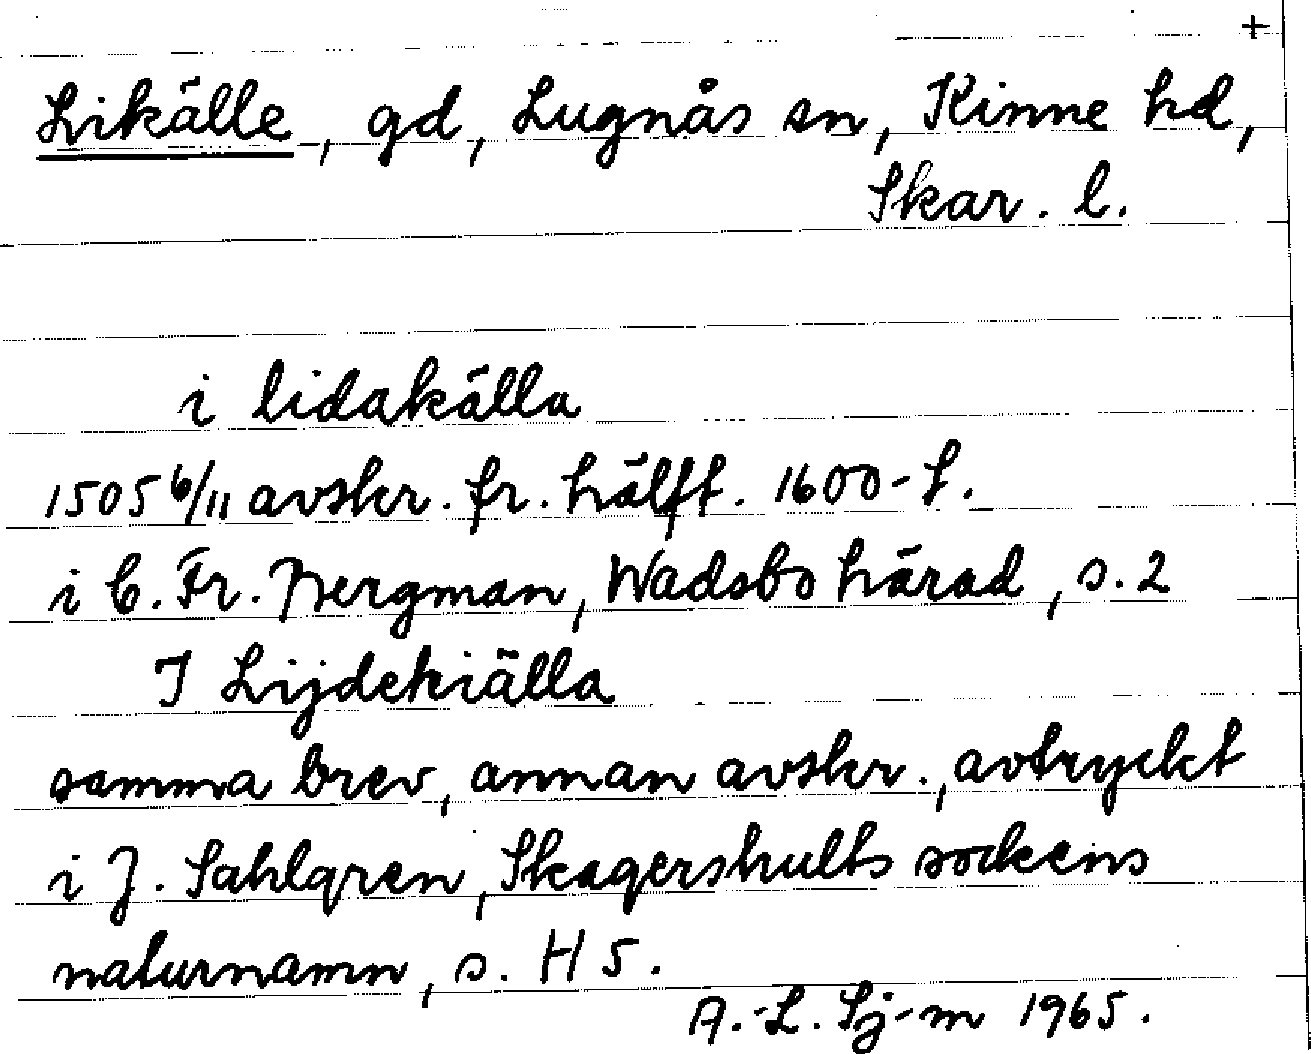 +
Likälle, gd, Lugnås sn, Kinne hd,
Skar. l.
i lidakälla
1505 6/11 avskr. fr. hälft. 1600-t.
i C. Fr. Bergman, Wadsbo härad, s. 2
I Lijdekiälla
samma brev, annan avskr., avtryckt
i J. Sahlgren, Skagershults sockens
naturnamn, s. H 5.
A.-L. Sj-m 1965.